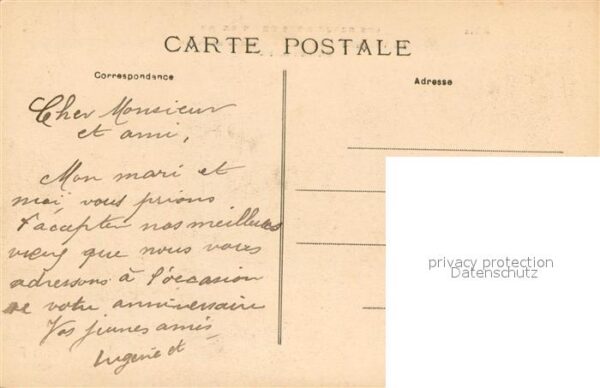 CARTE POSTALE
Correspondance
Adresse
Cher Monsieur
et ami,
Mon mari et
moi, vous prions
d'accepter nos meilleurs
vœux que nous vous
adressons à l'occasion
de votre anniversaire
Vos jeunes amis
et
privacy protection
Datenschutz